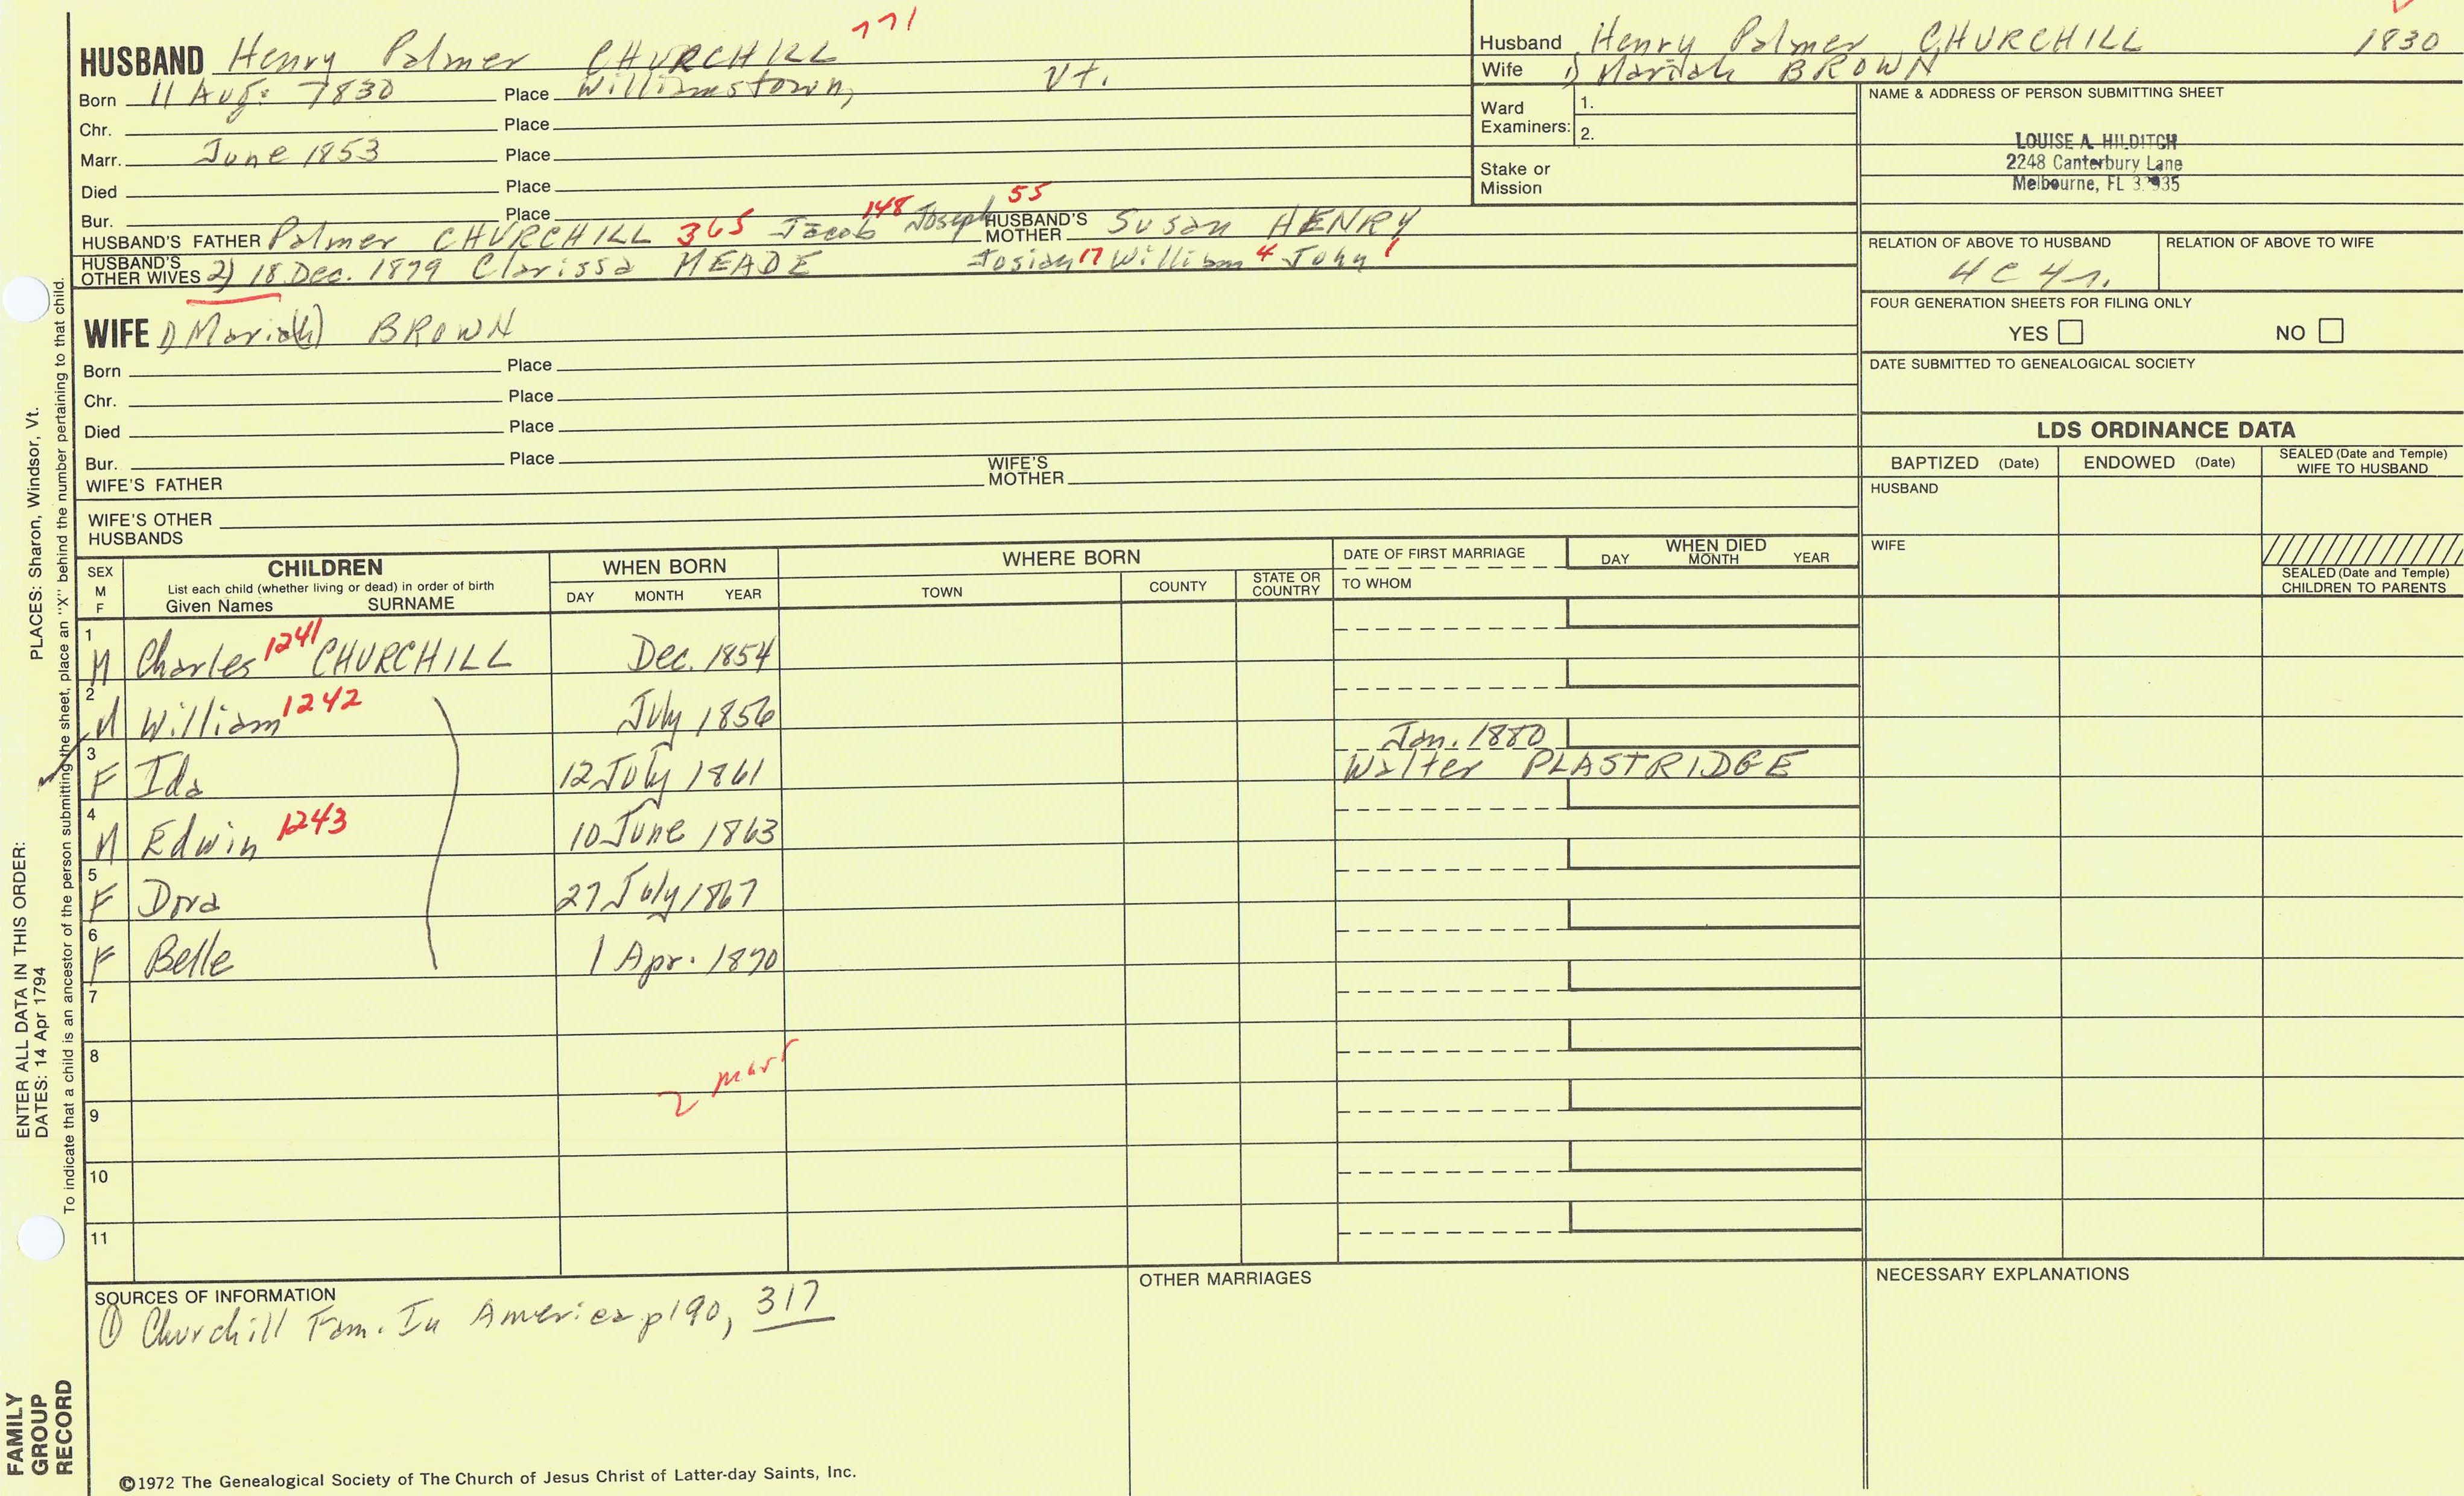 HUSBAND Henry Palmer CHURCHILL 771
Born 11 Aug. 1830 Place Williamstown, Vt.
Chr. Place
Marr. June 1853 Place
Died Place
Bur. Place
HUSBAND'S FATHER Palmer CHURCHILL 365 Jacob 148 Joseph 55 HUSBAND'S MOTHER Susan HENRY
HUSBAND'S OTHER WIVES 2) 18 Dec. 1879 Clarissa MEADE Josiah 17 William 4 John 1
WIFE 1) Maria(h) BROWN
Born Place
Chr. Place
Died Place
Bur. Place
WIFE'S FATHER WIFE'S MOTHER
WIFE'S OTHER HUSBANDS
Husband Henry Palmer CHURCHILL 1830
Wife 1) Mariah BROWN
Ward Examiners: 1.
2.
Stake or Mission
NAME & ADDRESS OF PERSON SUBMITTING SHEET
LOUISE A. HILDITCH
2248 Canterbury Lane
Melbourne, FL
RELATION OF ABOVE TO HUSBAND RELATION OF ABOVE TO WIFE
4C 4r.
FOUR GENERATION SHEETS FOR FILING ONLY
YES NO
DATE SUBMITTED TO GENEALOGICAL SOCIETY
LDS ORDINANCE DATA
BAPTIZED (Date) ENDOWED (Date) SEALED (Date and Temple) WIFE TO HUSBAND
HUSBAND
WIFE
SEALED (Date and Temple) CHILDREN TO PARENTS
SEX M F
CHILDREN
List each child (whether living or dead) in order of birth
Given Names SURNAME
WHEN BORN
DAY MONTH YEAR
WHERE BORN
TOWN COUNTY STATE OR COUNTRY
DATE OF FIRST MARRIAGE
TO WHOM
WHEN DIED
DAY MONTH YEAR
1 M Charles 1241 CHURCHILL Dec. 1854
2 M William 1242 July 1856
3 F Ida 12 July 1861 Jan. 1880 Walter PLASTRIDGE
4 M Edwin 1243 10 June 1863
5 F Dora 27 July 1867
6 F Belle 1 Apr. 1870
7
8
2 marr
9
10
11
SOURCES OF INFORMATION
① Churchill Fam. In America p190, 317
OTHER MARRIAGES
NECESSARY EXPLANATIONS
©1972 The Genealogical Society of The Church of Jesus Christ of Latter-day Saints, Inc.
FAMILY GROUP RECORD
ENTER ALL DATA IN THIS ORDER:
DATES: 14 Apr 1794
PLACES: Sharon, Windsor, Vt.
To indicate that a child is an ancestor of the person submitting the sheet, place an "X" behind the number pertaining to that child.